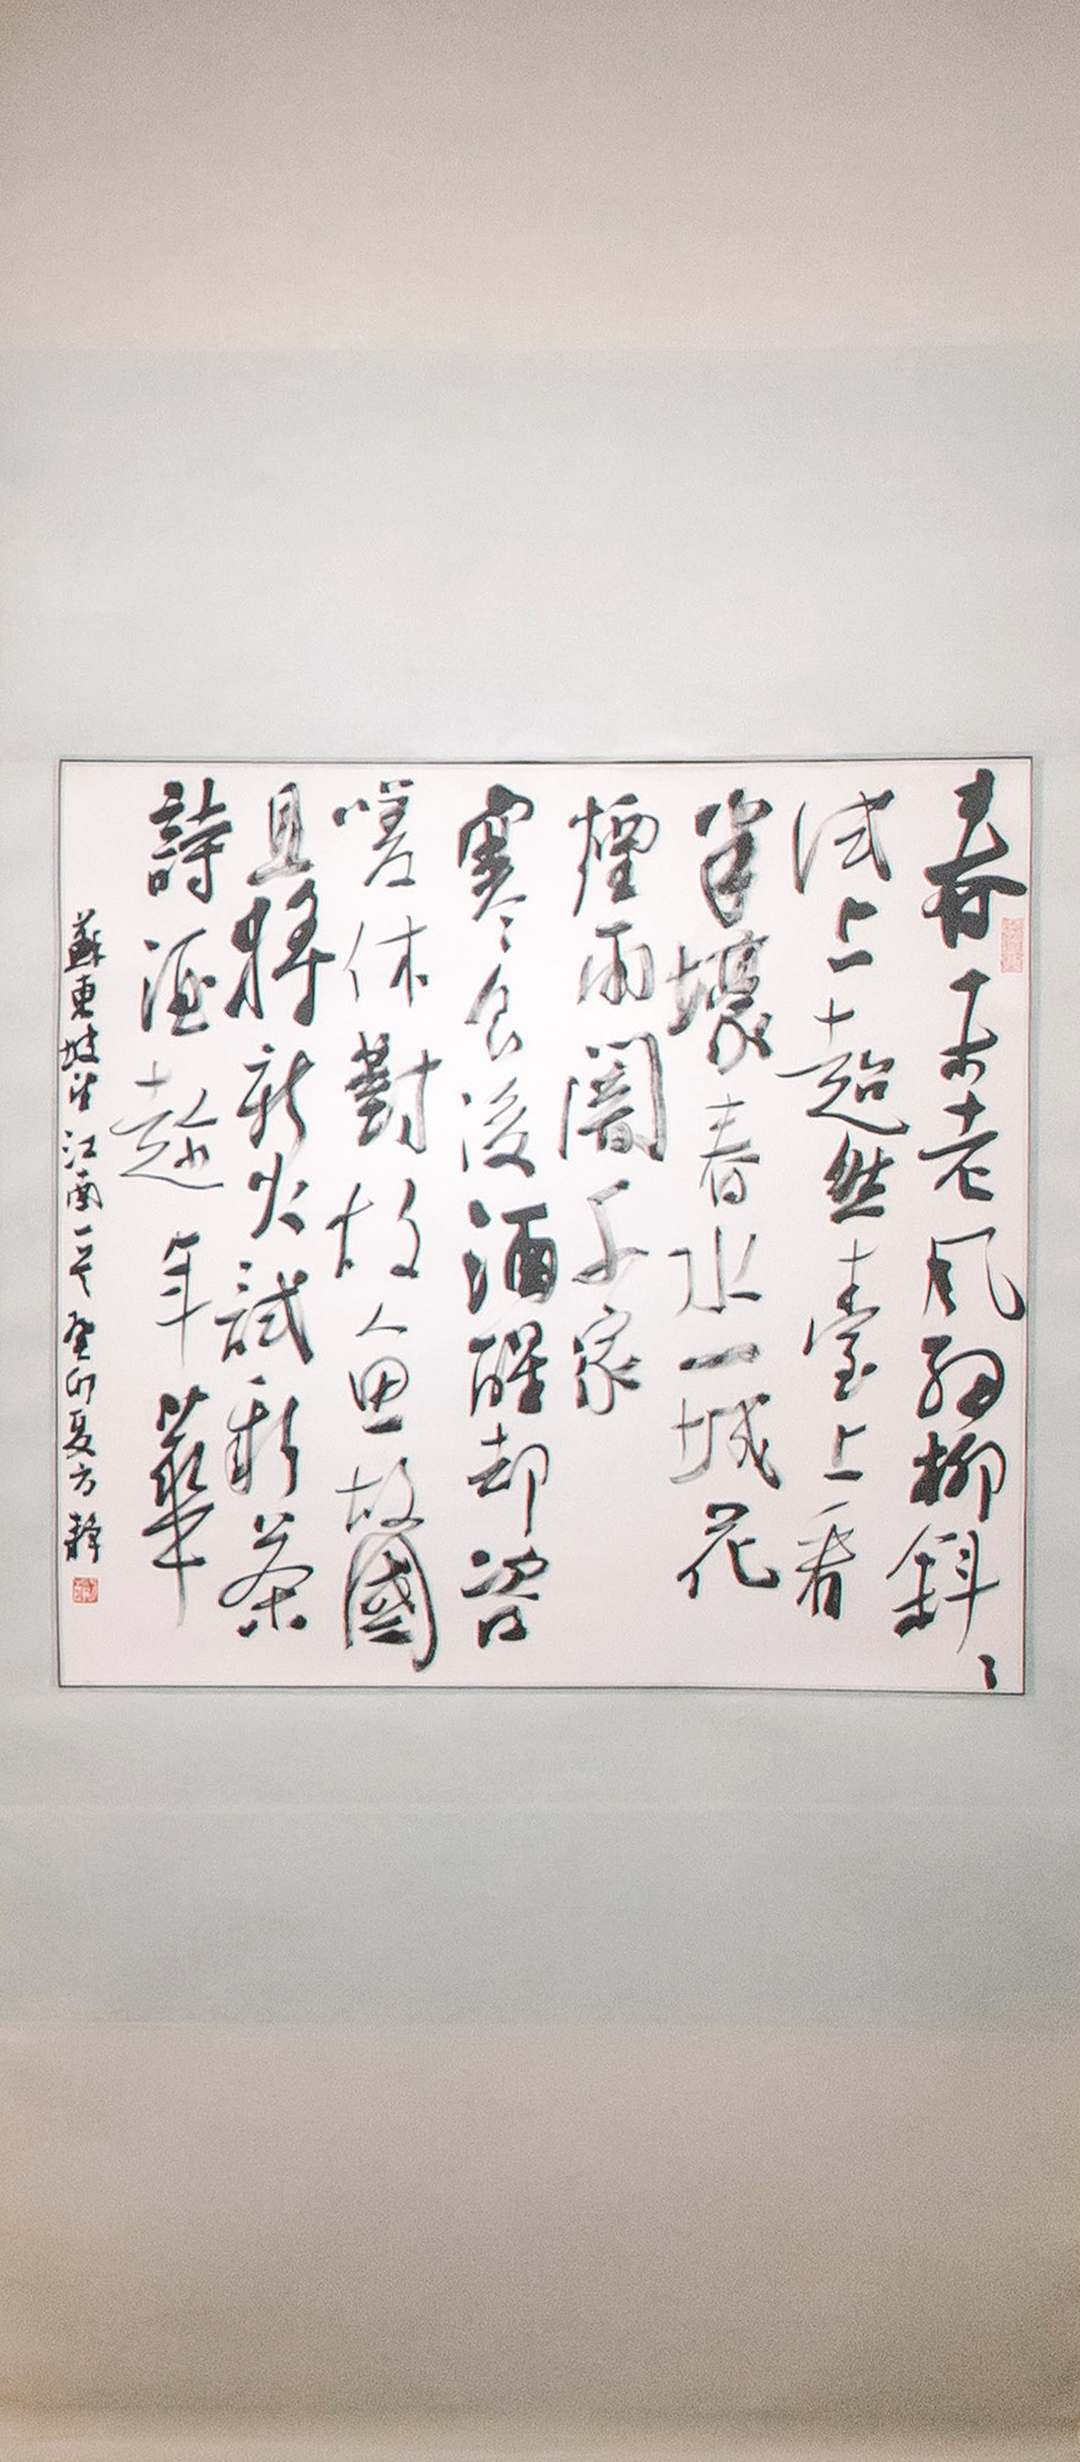 春未老風細柳斜〻
試上超然臺上看
半壕春水一城花
煙雨闇千家
寒食後酒醒却咨
嗟休對故人思故國
且將新火試新茶
詩酒趁年華
蘇東坡望江南一首 癸卯夏方靜